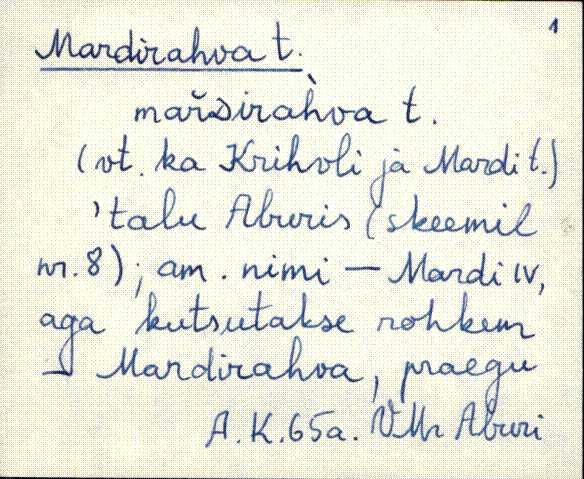 1
Mardirahva t.
maršsirahva t.
(vt. ka Krihvli ja Mardi t.)
'talu Aburis (skeemil
nr. 8); am. nimi — Mardi IV,
aga kutsutakse rohkem
— Mardirahva, praegu
A.K. 65a. VMr Aburi